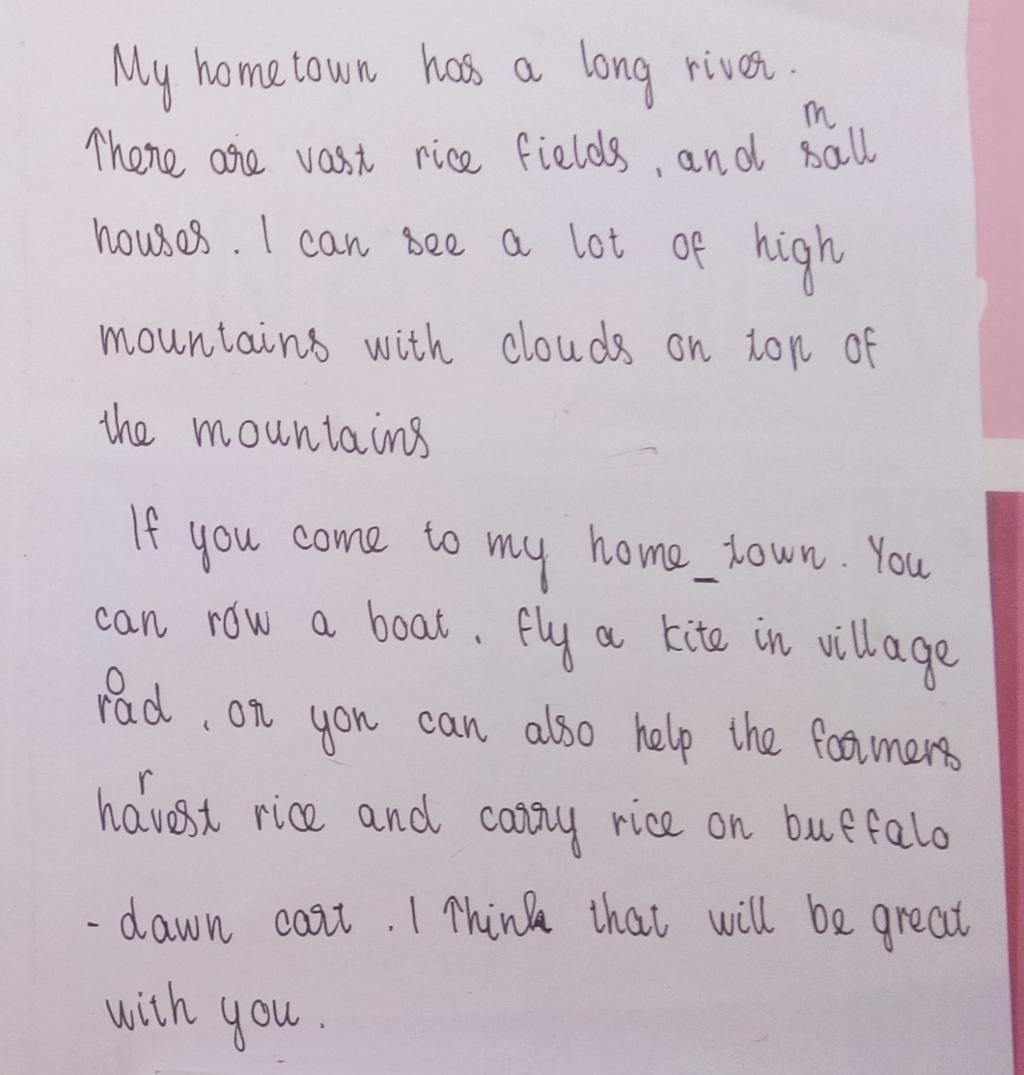 My hometown has a long river.
There are vast rice fields, and small
houses. I can see a lot of high
mountains with clouds on top of
the mountains
If you come to my home_town. You
can row a boat, fly a kite in village
road, or you can also help the farmers
harvest rice and carry rice on buffalo
- dawn cart. I Think that will be great
with you.